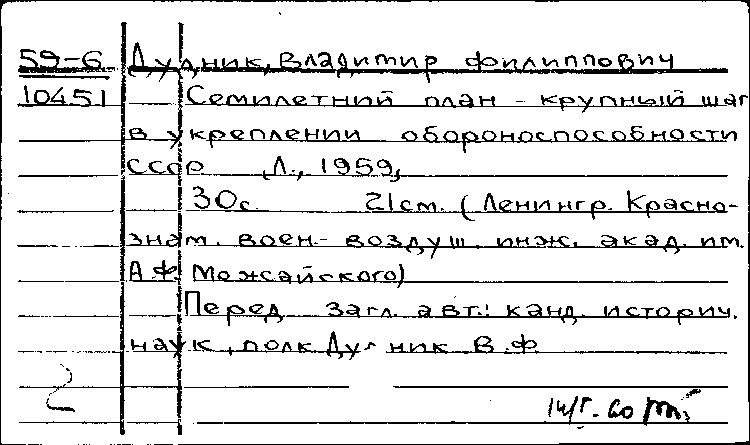 59-6 Дудник, Владимир Филиппович
10451 Семилетний план - крупный шаг
в укреплении обороноспособности
СССР Л., 1959,
30с. 21см. (Ленингр. Красно-
знам. воен.- воздуш. инж. акад. им.
А.Ф. Можайского)
Перед загл. авт.: канд. историч.
наук, полк Дудник В.Ф.